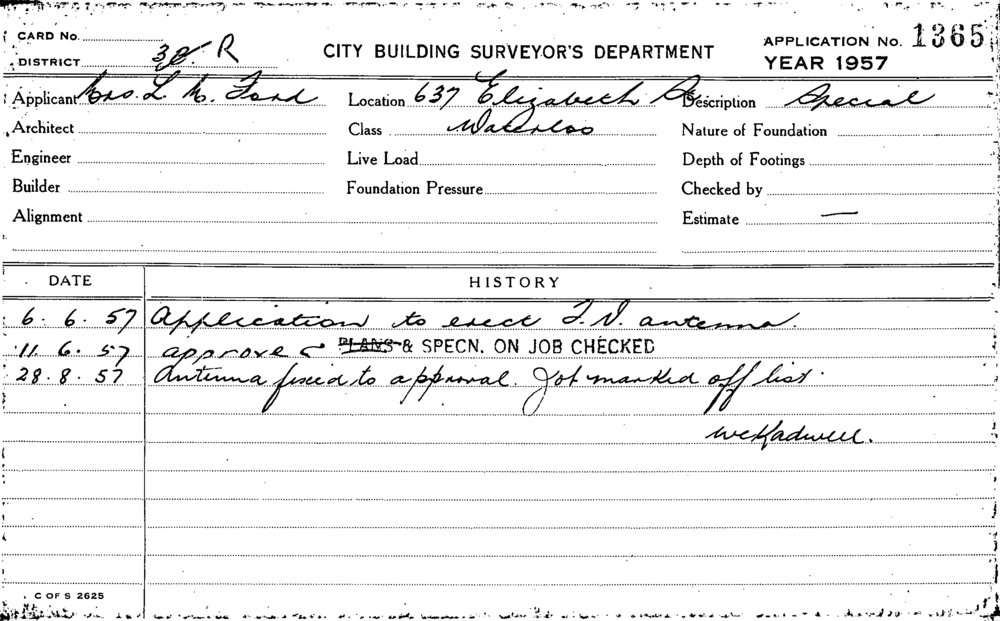 CARD No. APPLICATION No. 1365
DISTRICT R CITY BUILDING SURVEYOR'S DEPARTMENT YEAR 1957
Applicant Mrs. L. M. Ford Location 637 Elizabeth St Description Special
Architect Class Waterloo Nature of Foundation
Engineer Live Load Depth of Footings
Builder Foundation Pressure Checked by
Alignment Estimate —
DATE HISTORY
6. 6. 57 Application to erect T.V. antenna.
11. 6. 57 approved PLANS & SPECN. ON JOB CHECKED
28. 8. 57 Antenna fixed to approval. Job marked off list.
C OF S 2625